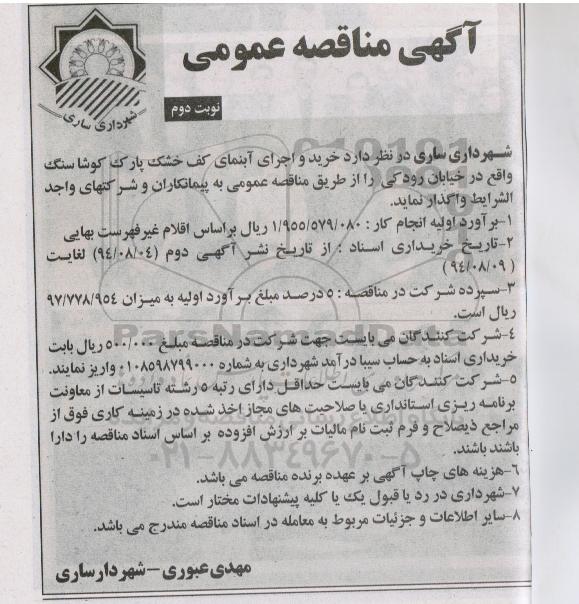 آگهی مناقصه عمومی
شهرداری ساری
نوبت دوم
شهرداری ساری در نظر دارد خرید و اجرای آبنمای کف خشک پارک کوشا سنگ
واقع در خیابان رودکی را از طریق مناقصه عمومی به پیمانکاران و شرکتهای واجد
الشرایط واگذار نماید.
۱-برآورد اولیه انجام کار : ۱/۹۵۵/۵۷۹/۰۸۰ ریال براساس اقلام غیرفهرست بهایی
۲-تاریخ خریداری اسناد : از تاریخ نشر آگهی دوم (۹۴/۰۸/۰۴) لغایت
(۹۴/۰۸/۰۹)
۳-سپرده شرکت در مناقصه : ۵ درصد مبلغ برآورد اولیه به میزان ۹۷/۷۷۸/۹۵۴
ریال است.
۴-شرکت کنندگان می بایست جهت شرکت در مناقصه مبلغ ۵۰۰/۰۰۰ ریال بابت
خریداری اسناد به حساب سیبا درآمد شهرداری به شماره ۰۱۰۸۵۹۸۷۹۹۰۰۰ واریز نمایند.
۵-شرکت کنندگان می بایست حداقل دارای رتبه ۵ رشته تاسیسات از معاونت
برنامه ریزی استانداری یا صلاحیت های مجاز اخذ شده در زمینه کاری فوق از
مراجع ذیصلاح و فرم ثبت نام مالیات بر ارزش افزوده بر اساس اسناد مناقصه را دارا
باشند باشند.
۶-هزینه های چاپ آگهی بر عهده برنده مناقصه می باشد.
۷-شهرداری در رد یا قبول یک یا کلیه پیشنهادات مختار است.
۸-سایر اطلاعات و جزئیات مربوط به معامله در اسناد مناقصه مندرج می باشد.
مهدی عبوری - شهردار ساری
ParsNamadData
۰۲۱-۸۸۳۴۹۶۷۰-۵